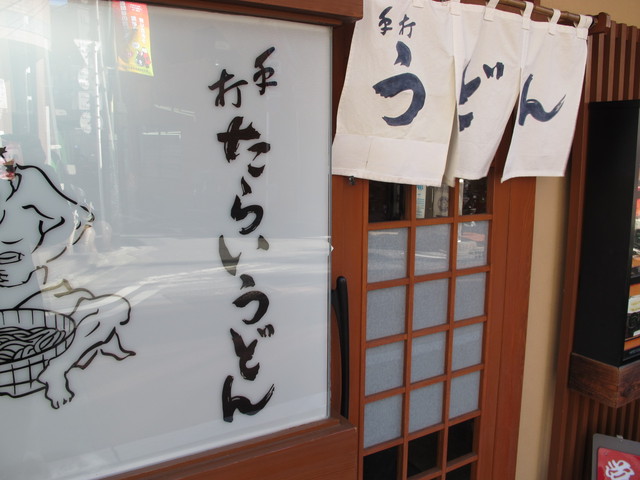 手打
たらいうどん
手打
うどん